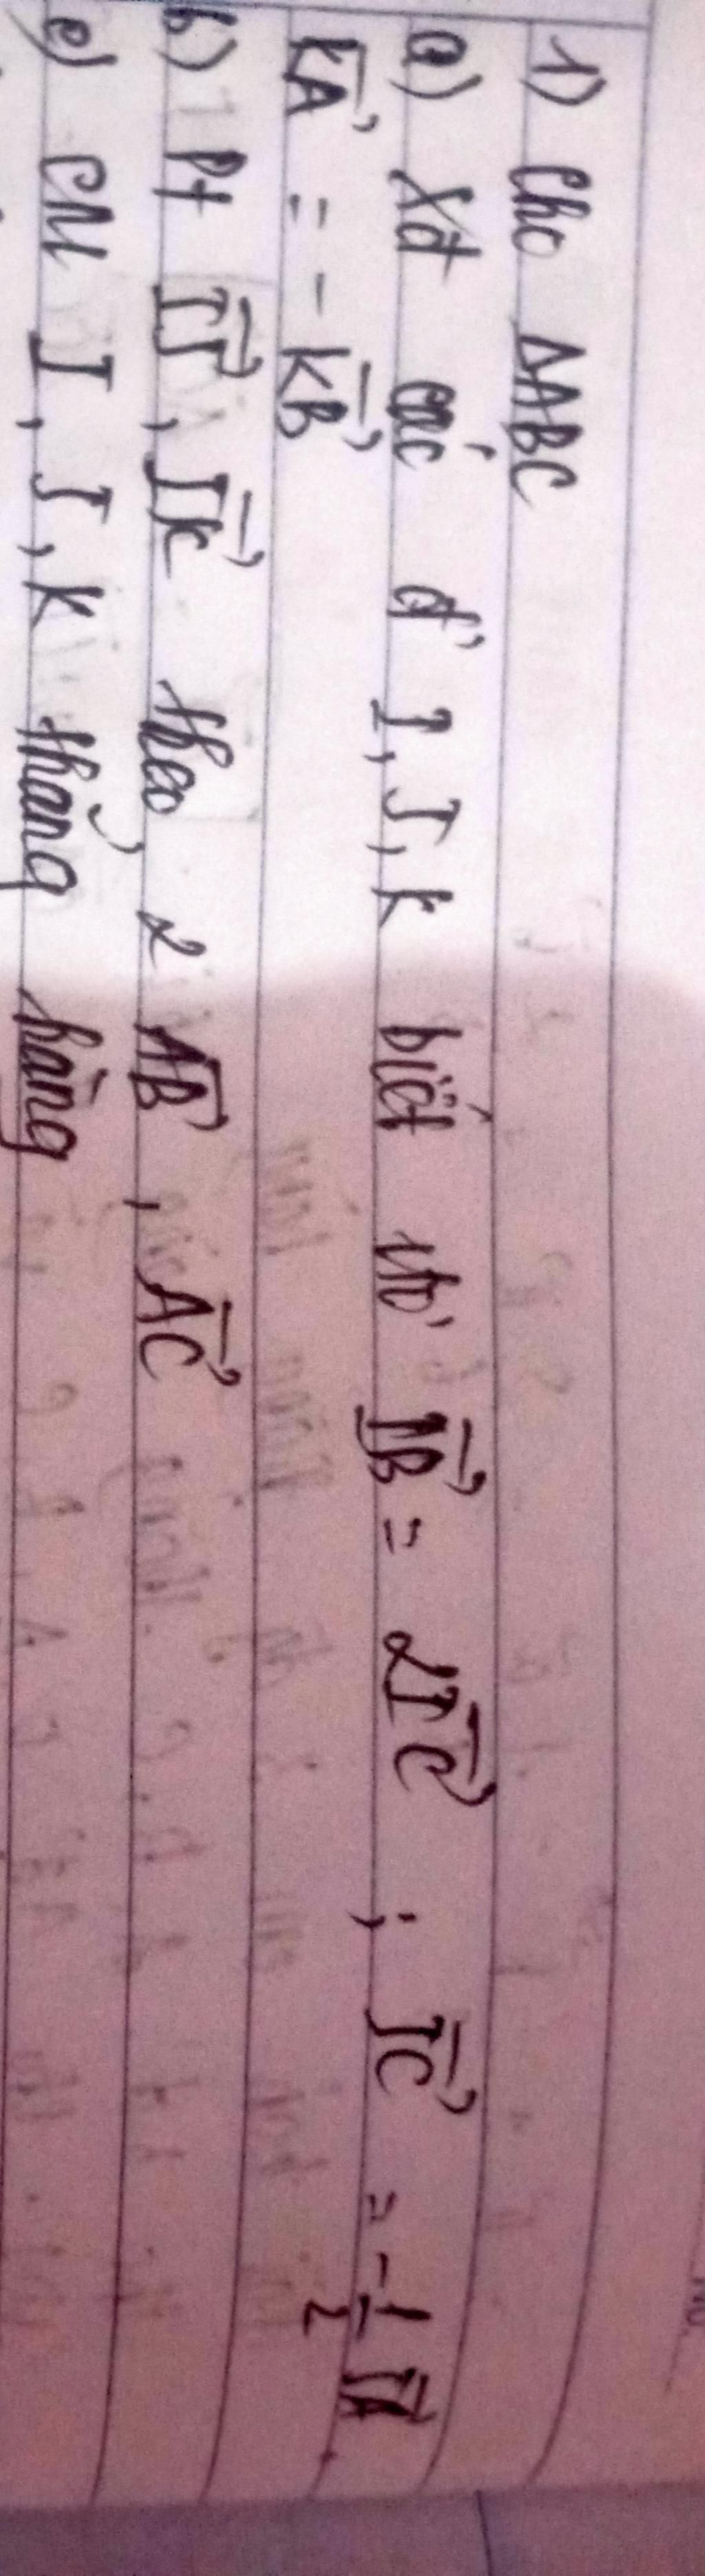 1) Cho ΔABC
a) Xđ các đ' I, J, K biết rằng IB→ = 2IC→ ; JC→ = -1/2 JA→.
KA→ = - KB→
b) Pt IJ→, IK→ theo 2 AB→, AC→
c) CM I, J, K thẳng hàng